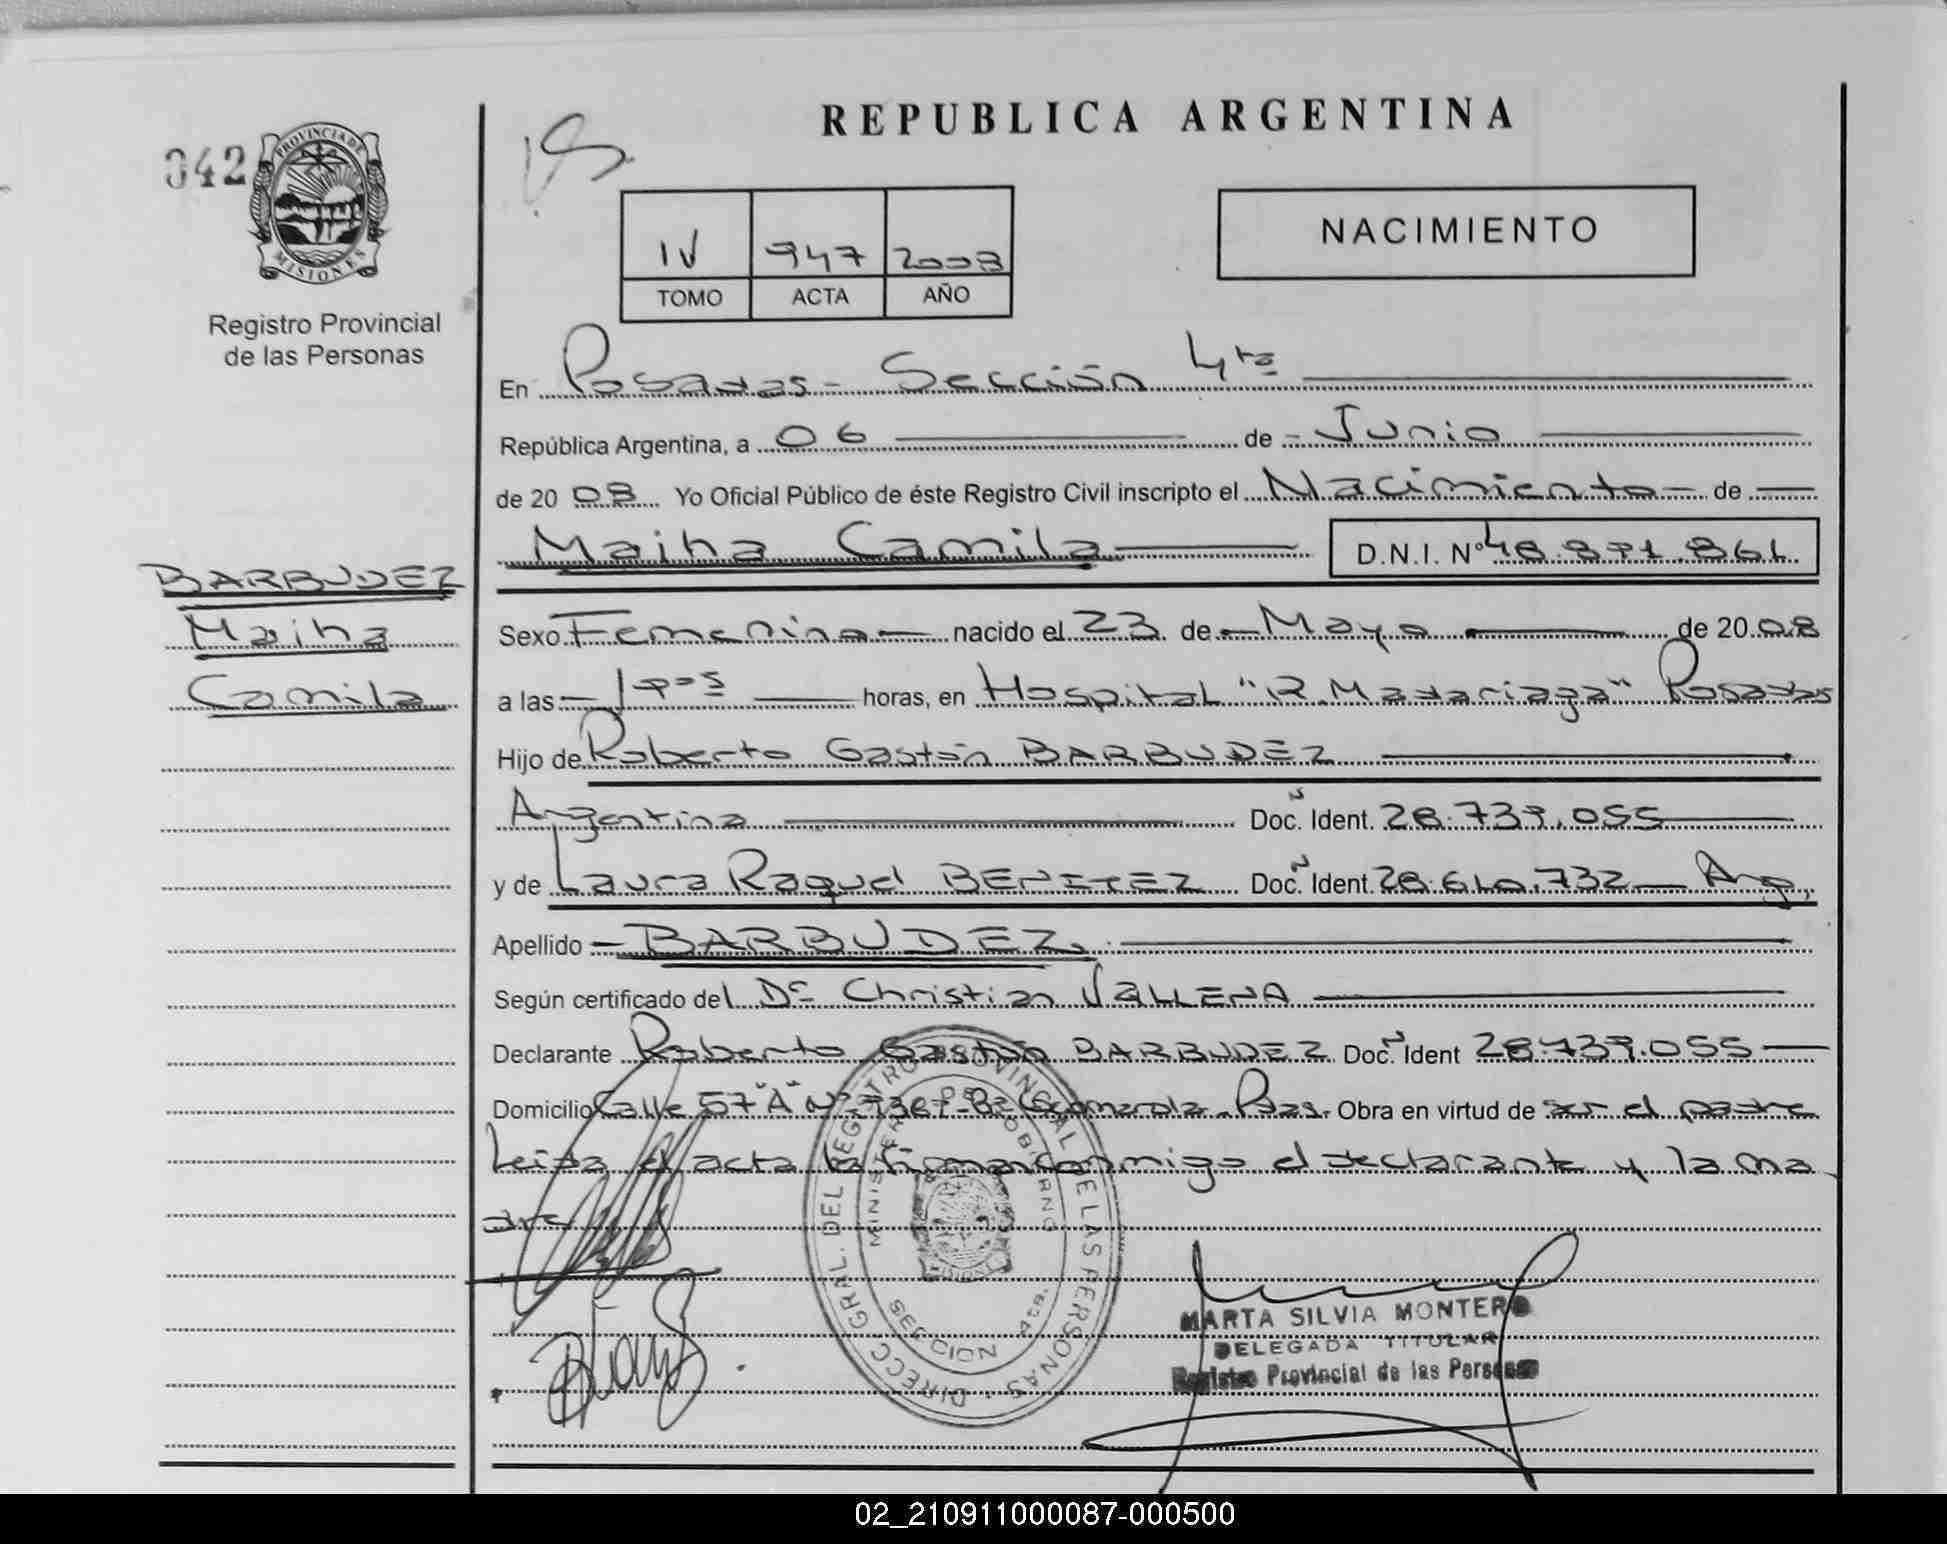 REPUBLICA ARGENTINA
042
PROVINCIA DE
MISIONES
Registro Provincial
de las Personas
IV 947 2008
TOMO ACTA AÑO
NACIMIENTO
En Posadas - Sección 4ta
República Argentina, a 06 de Junio
de 20 08 Yo Oficial Público de éste Registro Civil inscripto el Nacimiento de
Maiha Camila D.N.I. Nº 48.891.861
BARBUDEZ
Maiha
Camila
Sexo Femenino nacido el 23 de Mayo de 20 08
a las horas, en Hospital "R. Madariaga" Posadas
Hijo de Roberto Gastón BARBUDEZ
Argentina Doc. Ident. 28.739.055
y de Laura Raquel BENITEZ Doc. Ident. 28.610.732 Arg.
Apellido BARBUDEZ
Según certificado del Dr Christian VALLENA
Declarante Roberto Gastón BARBUDEZ Doc. Ident 28.739.055
Domicilio Calle 57 "A" Nº Pdas. Obra en virtud de ser el padre
Leida el acta la firman conmigo el declarante y la ma
dre
DIRECC GRAL. DEL REGISTRO PROVINCIAL DE LAS PERSONAS
MINISTERIO DE GOBIERNO
SECCION 4ta.
MARTA SILVIA MONTERO
DELEGADA TITULAR
Registro Provincial de las Personas
02_210911000087-000500